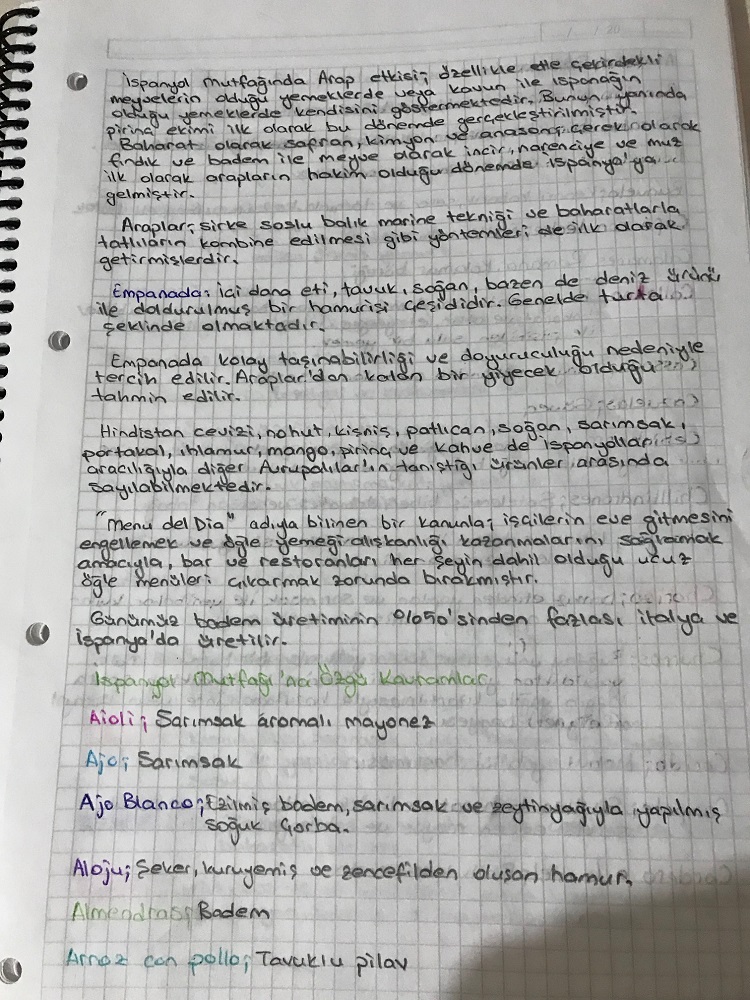 İspanyol mutfağında Arap etkisi; özellikle etle çekirdekli
meyvelerin olduğu yemeklerde veya kavun ile ıspanağın
olduğu yemeklerde kendisini göstermektedir. Bunun yanında
pirinç ekimi ilk olarak bu dönemde gerçekleştirilmiştir.
Baharat olarak safran, kimyon ve anason; çerek olarak
fındık ve badem ile meyve olarak incir, narenciye ve muz
ilk olarak arapların hakim olduğu dönemde İspanya'ya
gelmiştir.
Araplar; sirke soslu balık marine tekniği ve baharatlarla
tatlıların kombine edilmesi gibi yöntemleri de ilk olarak
getirmişlerdir.
Empanada: içi dana eti, tavuk, soğan, bazen de deniz ürünü
ile doldurulmuş bir hamurişi çeşididir. Genelde turta
şeklinde olmaktadır.
Empanada kolay taşınabilirliği ve doyuruculuğu nedeniyle
tercih edilir. Araplar'dan kalan bir yiyecek olduğu
tahmin edilir.
Hindistan cevizi, nohut, kişniş, patlıcan, soğan, sarımsak,
portakal, ıhlamur, mango, pirinç ve kahve de İspanyollar
aracılığıyla diğer Avrupalılar'ın tanıştığı ürünler arasında
sayılabilmektedir.
"Menu del Dia" adıyla bilinen bir kanunla; işçilerin eve gitmesini
engellemek ve öğle yemeği alışkanlığı kazanmalarını sağlamak
amacıyla, bar ve restoranları her şeyin dahil olduğu ucuz
öğle menüleri çıkarmak zorunda bırakmıştır.
Günümüz badem üretiminin %50'sinden fazlası İtalya ve
İspanya'da üretilir.
İspanyol Mutfağı'na Özgü Kavramlar
Aioli; Sarımsak aromalı mayonez
Ajo; Sarımsak
Ajo Blanco; Ezilmiş badem, sarımsak ve zeytinyağıyla yapılmış
soğuk çorba.
Aloju; Şeker, kuruyemiş ve zencefilden oluşan hamur.
Almendras; Badem
Arroz con pollo; Tavuklu pilav